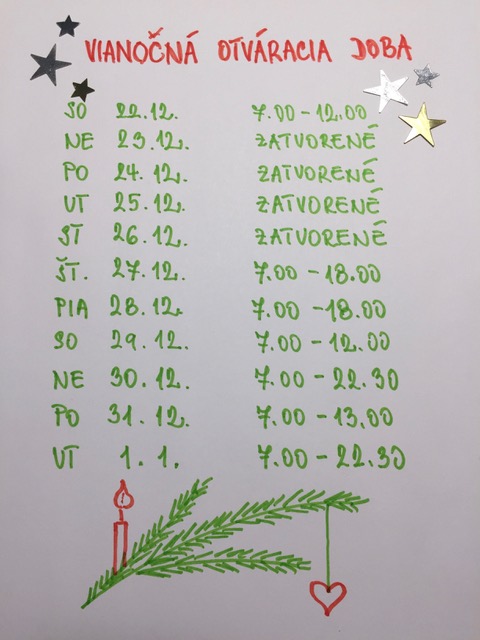 VIANOČNÁ OTVÁRACIA DOBA
SO 22.12. 7.00-12.00
NE 23.12. ZATVORENÉ
PO 24.12. ZATVORENÉ
UT 25.12. ZATVORENÉ
ST 26.12. ZATVORENÉ
ŠT. 27.12. 7.00-18.00
PIA 28.12. 7.00-18.00
SO 29.12. 7.00-12.00
NE 30.12. 7.00-22.30
PO 31.12. 7.00-13.00
UT 1.1. 7.00-22.30